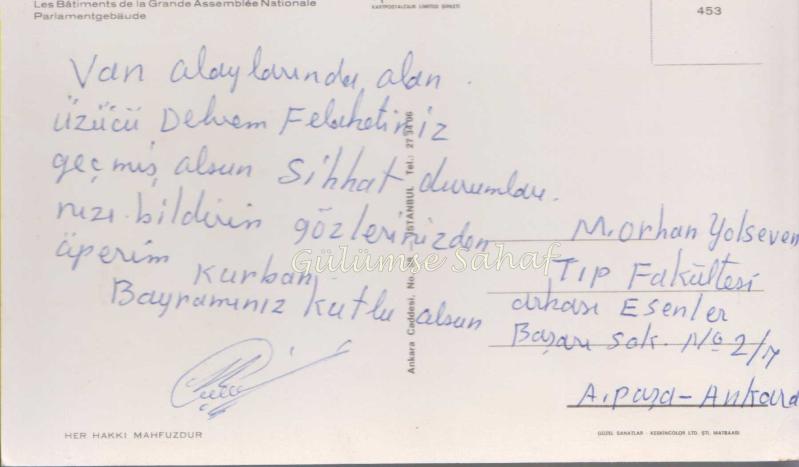 Les Bâtiments de la Grande Assemblée Nationale
Parlamentgebäude
KARTPOSTALCILIK LIMITED ŞİRKETİ
453
Van olaylarında olan
üzücü Delrem Felaketiniz
geçmiş olsun Sıhhat durumları
nızı bildirin gözlerinizden
öperim Kurban
Bayramınız Kutlu olsun
Ankara Caddesi, No. İSTANBUL Tel.: 27 34 06
Gülümse Sahaf
M. Orhan Yolseven
Tıp Fakültesi
arkası Esenler
Başarı Sok. No 2/7
A. paşa - Ankara
HER HAKKI MAHFUZDUR
GÜZEL SANATLAR - KESKİNCOLOR LTD. ŞTİ. MATBAASI